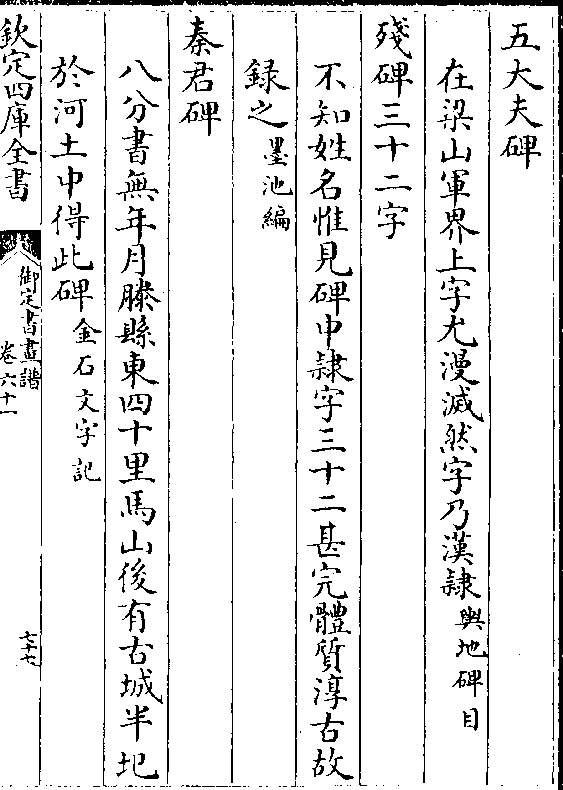 五大夫碑
在梁山軍界上字尤漫滅然字乃漢隷輿地碑目
殘碑三十二字
不知姓名惟見碑中隷字三十二甚完體質淳古故
録之墨池編
秦君碑
八分書無年月滕縣東四十里馬山後有古城半圮
於河土中得此碑金石文字記
欽定四庫全書
御定書畫譜
卷六十一
七十七